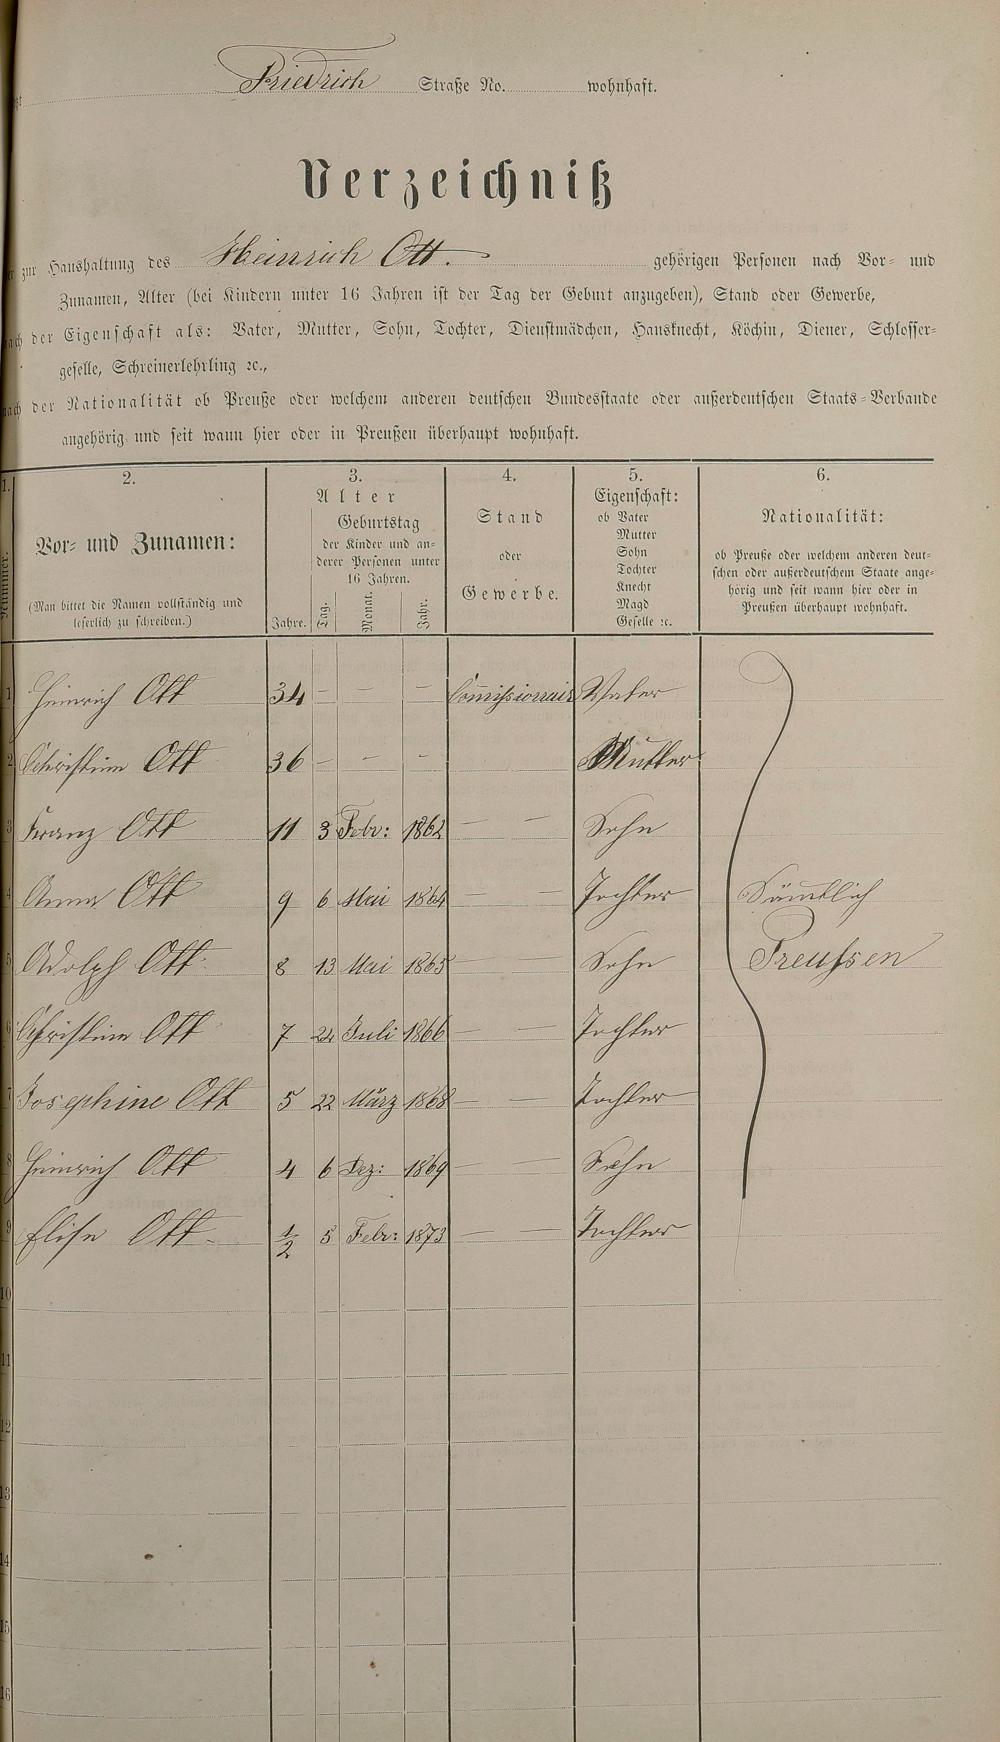 Friedrich Straße No. wohnhaft.
Verzeichniß
zur Haushaltung des Heinrich Ott. gehörigen Personen nach Vor- und
Zunamen, Alter (bei Kindern unter 16 Jahren ist der Tag der Geburt anzugeben), Stand oder Gewerbe,
nach der Eigenschaft als: Vater, Mutter, Sohn, Tochter, Dienstmädchen, Hausknecht, Köchin, Diener, Schlosser-
geselle, Schreinerlehrling ꝛc.,
nach der Nationalität ob Preuße oder welchem anderen deutschen Bundesstaate oder außerdeutschen Staats-Verbande
angehörig und seit wann hier oder in Preußen überhaupt wohnhaft.
1. 2. 3. 4. 5. 6.
Nummer.
Vor- und Zunamen:
(Man bittet die Namen vollständig und
leserlich zu schreiben.)
Alter
Geburtstag
der Kinder und an-
derer Personen unter
16 Jahren.
Jahre. Tag. Monat. Jahr.
Stand
oder
Gewerbe.
Eigenschaft:
ob Vater
Mutter
Sohn
Tochter
Knecht
Magd
Geselle ꝛc.
Nationalität:
ob Preuße oder welchem anderen deut-
schen oder außerdeutschem Staate ange-
hörig und seit wann hier oder in
Preußen überhaupt wohnhaft.
1 Heinrich Ott 34 – – – Commissionair Vater
2 Christine Ott 36 – – – Mutter
3 Franz Ott 11 3 Febr: 1862 – – Sohn
4 Anna Ott 9 6 Mai 1864 – – Tochter Sämtlich
5 Adolph Ott 8 13 Mai 1865 – – Sohn Preussen
6 Christine Ott 7 24 Juli 1866 – – Tochter
7 Josephine Ott 5 22 März 1868 – – Tochter
8 Heinrich Ott 4 6 Dez: 1869 – – Sohn
9 Elise Ott 1/2 5 Febr: 1873 – – Tochter
10
11
12
13
14
15
16